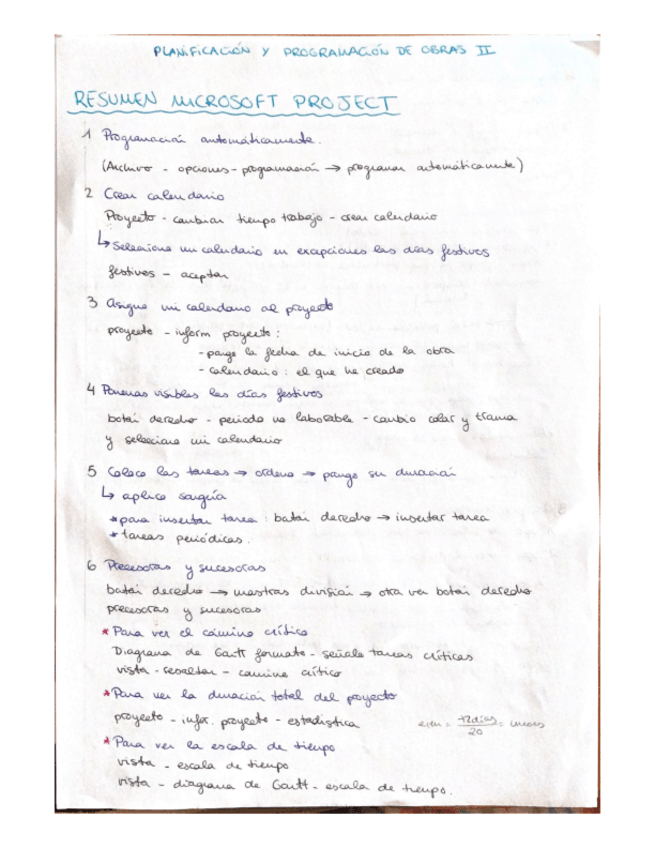 PLANIFICACIÓN Y PROGRAMACIÓN DE OBRAS II
RESUMEN MICROSOFT PROJECT
1 Programación automáticamente.
(Archivo - opciones - programación → programar automáticamente)
2 Crear calendario
Proyecto - cambiar tiempo trabajo - crear calendario
↳ Selecciono mi calendario en excepciones los días festivos
festivos - aceptar
3 Asigno mi calendario al proyecto
proyecto - inform proyecto:
- pongo la fecha de inicio de la obra
- calendario: el que he creado
4 Ponemos visibles los días festivos
botón derecho - periodo no laborable - cambio color y trama
y selecciono mi calendario
5 Coloco las tareas → ordeno → pongo su duración
↳ aplico sangría
* para insertar tarea: botón derecho → insertar tarea
* tareas periódicas.
6 Precesoras y sucesoras
botón derecho → mostras división → otra vez botón derecho
precesoras y sucesoras
* Para ver el camino crítico
Diagrama de Gantt formato - señalo tareas críticas
vista - resaltar - camino crítico
* Para ver la duración total del proyecto
proyecto - infor. proyecto - estadística
= 12 días / 20 = meses
* Para ver la escala de tiempo
vista - escala de tiempo
vista - diagrama de Gantt - escala de tiempo.